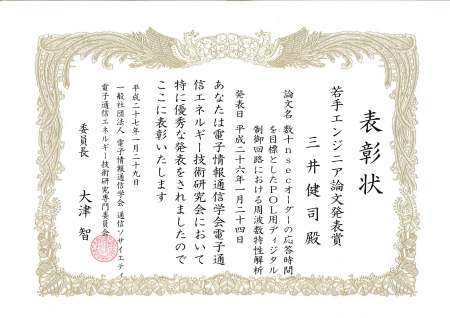 表彰状
若手エンジニア論文発表賞
三井健司殿
論文名 数十nsecオーダーの応答時間
を目標としたPOL用ディジタル
制御回路における周波数特性解析
発表日 平成二十六年一月二十四日
あなたは電子情報通信学会電子通
信エネルギー技術研究会において
特に優秀な発表をされましたので
ここに表彰いたします
平成二十七年一月二十九日
一般社団法人 電子情報通信学会 通信ソサイエティ
電子通信エネルギー技術研究専門委員会
委員長 大津智